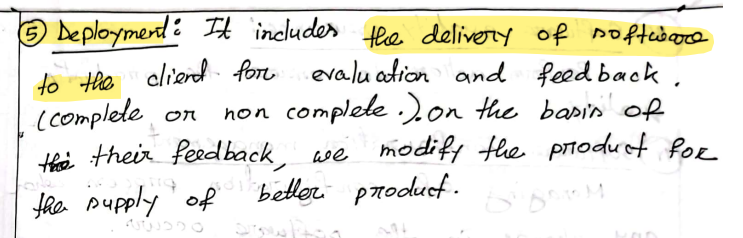 ⑤ Deployment: It includes the delivery of software
to the client for evaluation and feedback.
(complete or non complete.). on the basis of
their feedback, we modify the product for
the supply of better product.